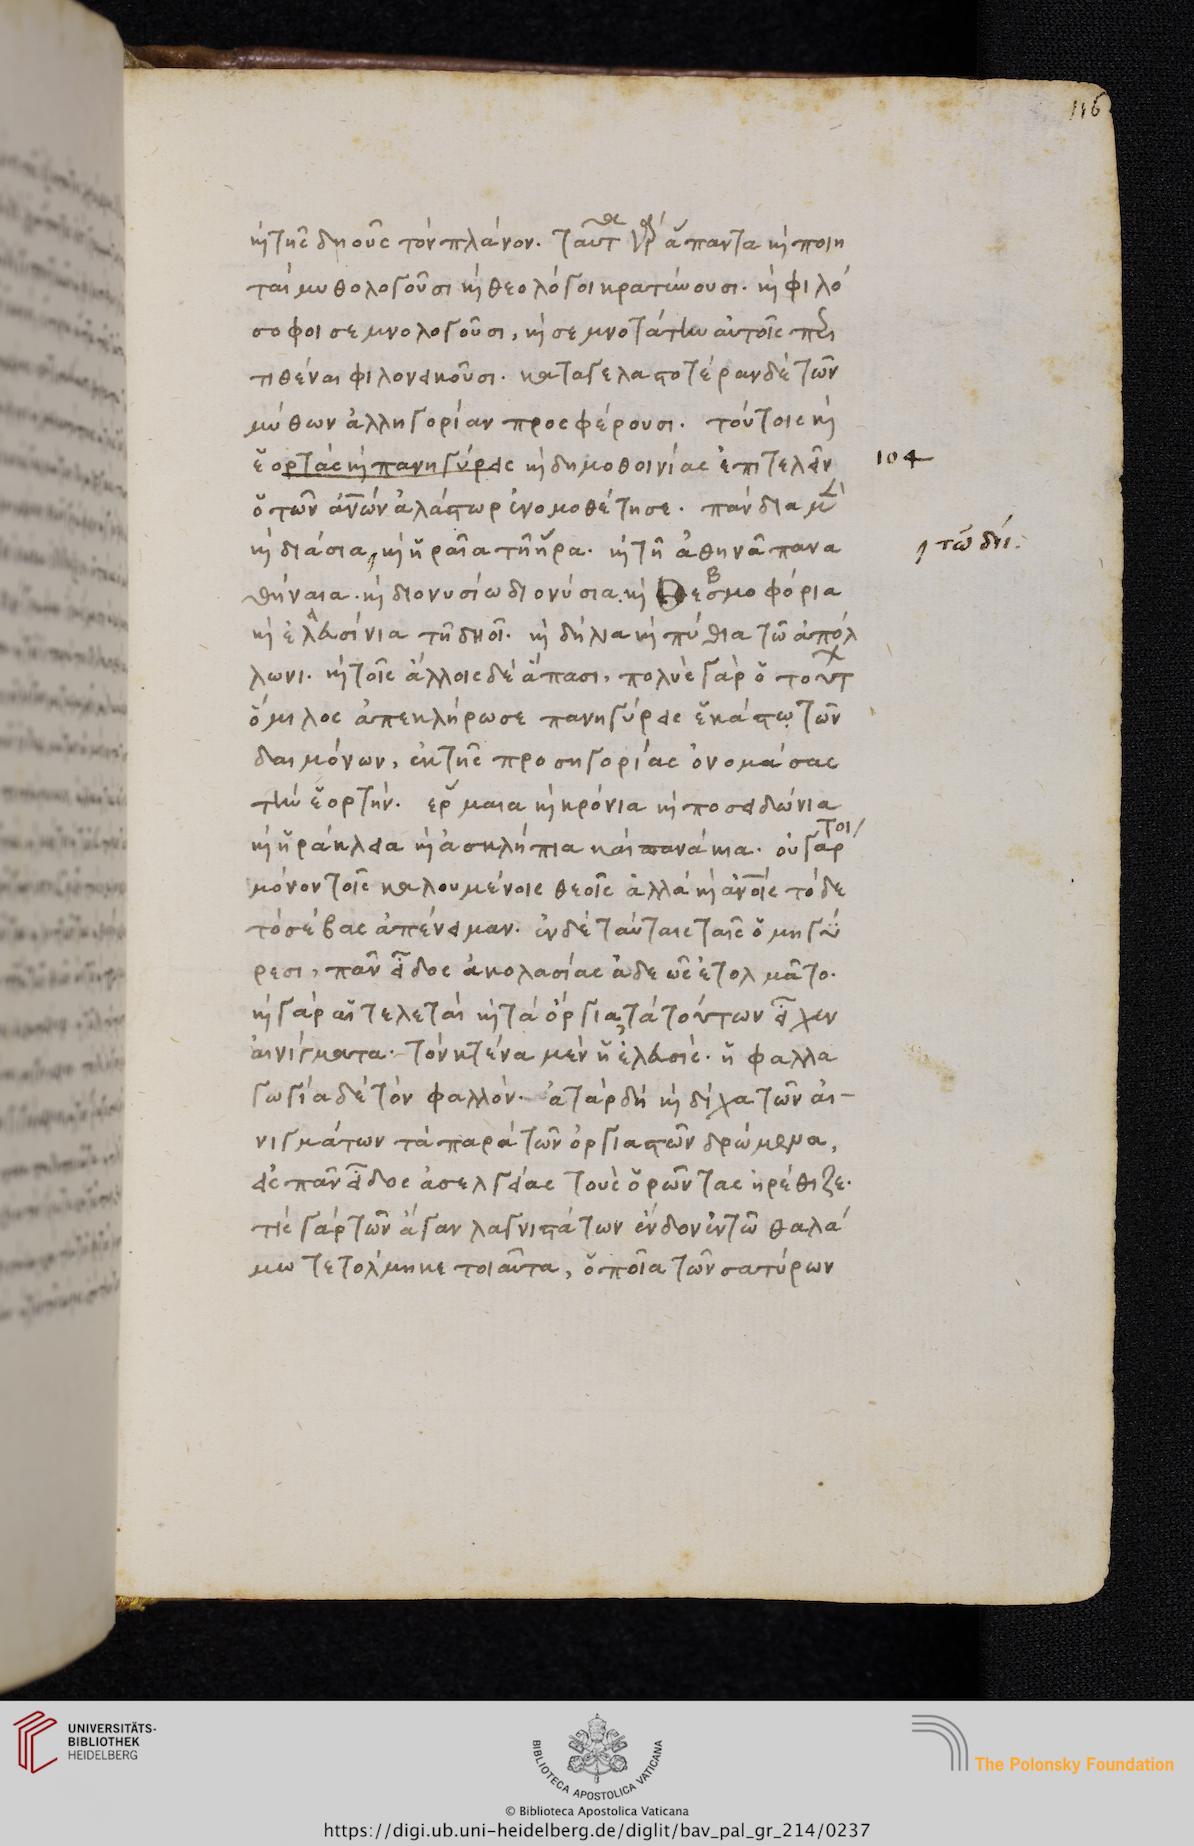 116
καὶ τῆς δηοῦς τὸν πλάνον. ταῦτα γὰρ ἅπαντα καὶ ποιη
ταὶ μυθολογοῦσι καὶ θεολόγοι κρατύνουσι. καὶ φιλό
σοφοι σεμνολογοῦσι, καὶ σεμνοτάτην αὐτοῖς περι
τιθέναι φιλονεικοῦσι. καταγελαστοτέραν δὲ τῶν
μύθων ἀλληγορίαν προσφέρουσι. τούτοις καὶ
ἑορτὰς καὶ πανηγύρεις καὶ δημοθοινίας ἐπιτελεῖν
ὁ τῶν ἀνῶν ἀλάστωρ ἐνομοθέτησε. πάνδια μὲν
καὶ διάσια, καὶ ἡραῖα τῇ ἥρα. καὶ τῇ ἀθηνᾶ πανα
θήναια. καὶ διονυσίω διονύσια. καὶ θεσμοφόρια
καὶ ἐλευσίνια τῇ δηοῖ. καὶ δήλια καὶ πύθια τῶ ἀπόλ
λωνι. καὶ τοῖς ἄλλοις δὲ ἅπασι, πολὺς γὰρ ὁ τούτ
ὅμιλος ἀπεκλήρωσε πανηγύρεις ἑκάστῳ τῶν
δαιμόνων, ἐκ τῆς προσηγορίας ὀνομάσας
τὴν ἑορτήν. ἕρμαια καὶ κρόνια καὶ ποσειδώνια
καὶ ἡράκλεια καὶ ἀσκλήπια καὶ πανάκια. οὐ γάρ τοι
μόνον τοῖς καλουμένοις θεοῖς ἀλλὰ καὶ ἀνοῖς τόδε
τὸ σέβας ἀπένειμαν. ἐν δὲ ταύταις ταῖς ὁμηγύ
ρεσι, πᾶν εἶδος ἀκολασίας ἀδεῶς ἐτολμᾶτο.
καὶ γὰρ αἱ τελεταὶ καὶ τὰ ὄργια τὰ τούτων εἶχεν
αἰνίγματα. τὸν κτένα μὲν ἡ ἐλευσίς. ἡ φαλλα
γωγία δὲ τὸν φαλλόν. ἀτὰρ δὴ καὶ δίχα τῶν αἰ-
νιγμάτων τὰ παρὰ τῶν ὀργιαστῶν δρώμενα,
εἰς πᾶν εἶδος ἀσελγείας τοὺς ὁρῶντας ἠρέθιζε.
τίς γὰρ τῶν ἄγαν λαγνιστάτων ἔνδον ἐν τῶ θαλά
μω τετόλμηκε τοιαῦτα, ὁποῖα τῶν σατύρων
104
τῶ διί:
UNIVERSITÄTS-
BIBLIOTHEK
HEIDELBERG
BIBLIOTECA APOSTOLICA VATICANA
© Biblioteca Apostolica Vaticana
The Polonsky Foundation
https://digi.ub.uni-heidelberg.de/diglit/bav_pal_gr_214/0237